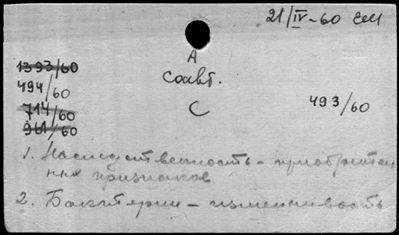 21/IV-60
А
1393/60
Соавт.
494/60
С 493/60
714/60
961/60
1. Наследственность - приобретен
ных признаков
2. Бактерии - изменчивость